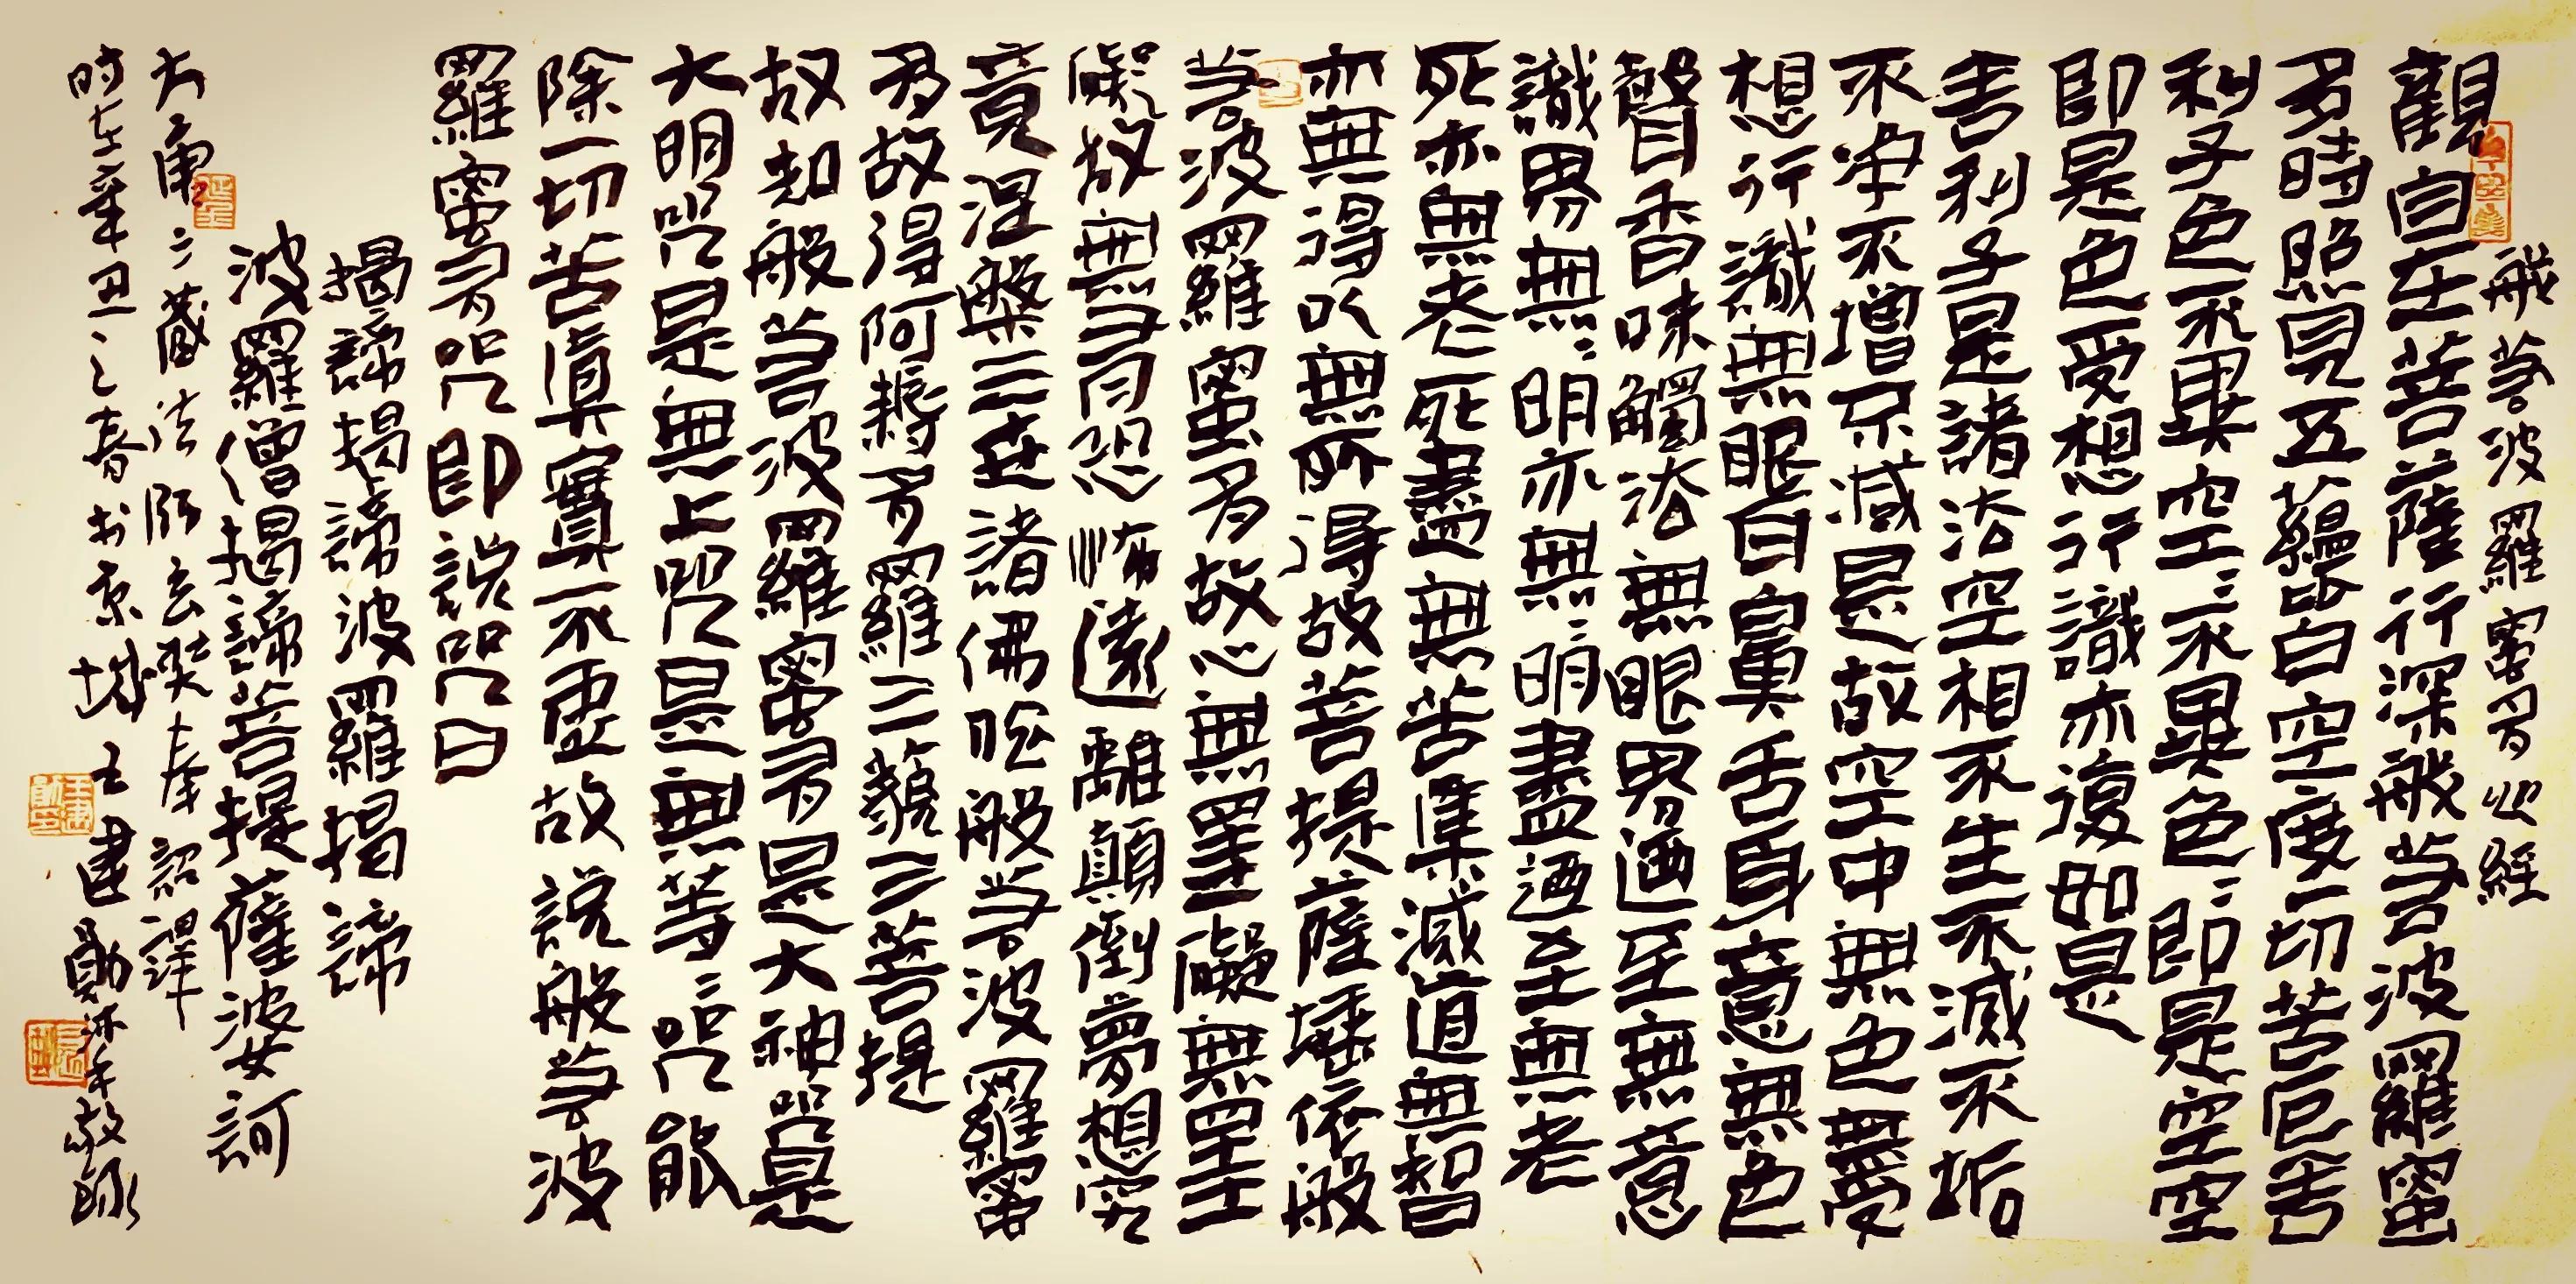 般若波羅蜜多心經
觀自在菩薩行深般若波羅蜜
多時照見五蘊皆空度一切苦厄舍
利子色不異空〻不異色〻即是空空
即是色受想行識亦復如是
舍利子是諸法空相不生不滅不垢
不净不增不减是故空中無色無受
想行識無眼耳鼻舌身意無色
聲香味觸法無眼界迺至無意
識界無〻明亦無〻明盡迺至無老
死亦無老死盡無苦集滅道無智
亦無得以無所得故菩提薩埵依般
若波羅蜜多故心無罣礙無罣
礙故無有恐怖遠離顛倒夢想究
竟涅槃三世諸佛依般若波羅蜜
多故得阿耨多羅三藐三菩提
故知般若波羅蜜多是大神咒是
大明咒是無上咒是無等〻咒能
除一切苦真實不虛故說般若波
羅蜜多咒即說咒曰
揭諦揭諦波羅揭諦
波羅僧揭諦菩提薩波訶
大唐三藏法師玄奘奉詔譯
時在辛丑之春於京城王建勛沐手敬錄